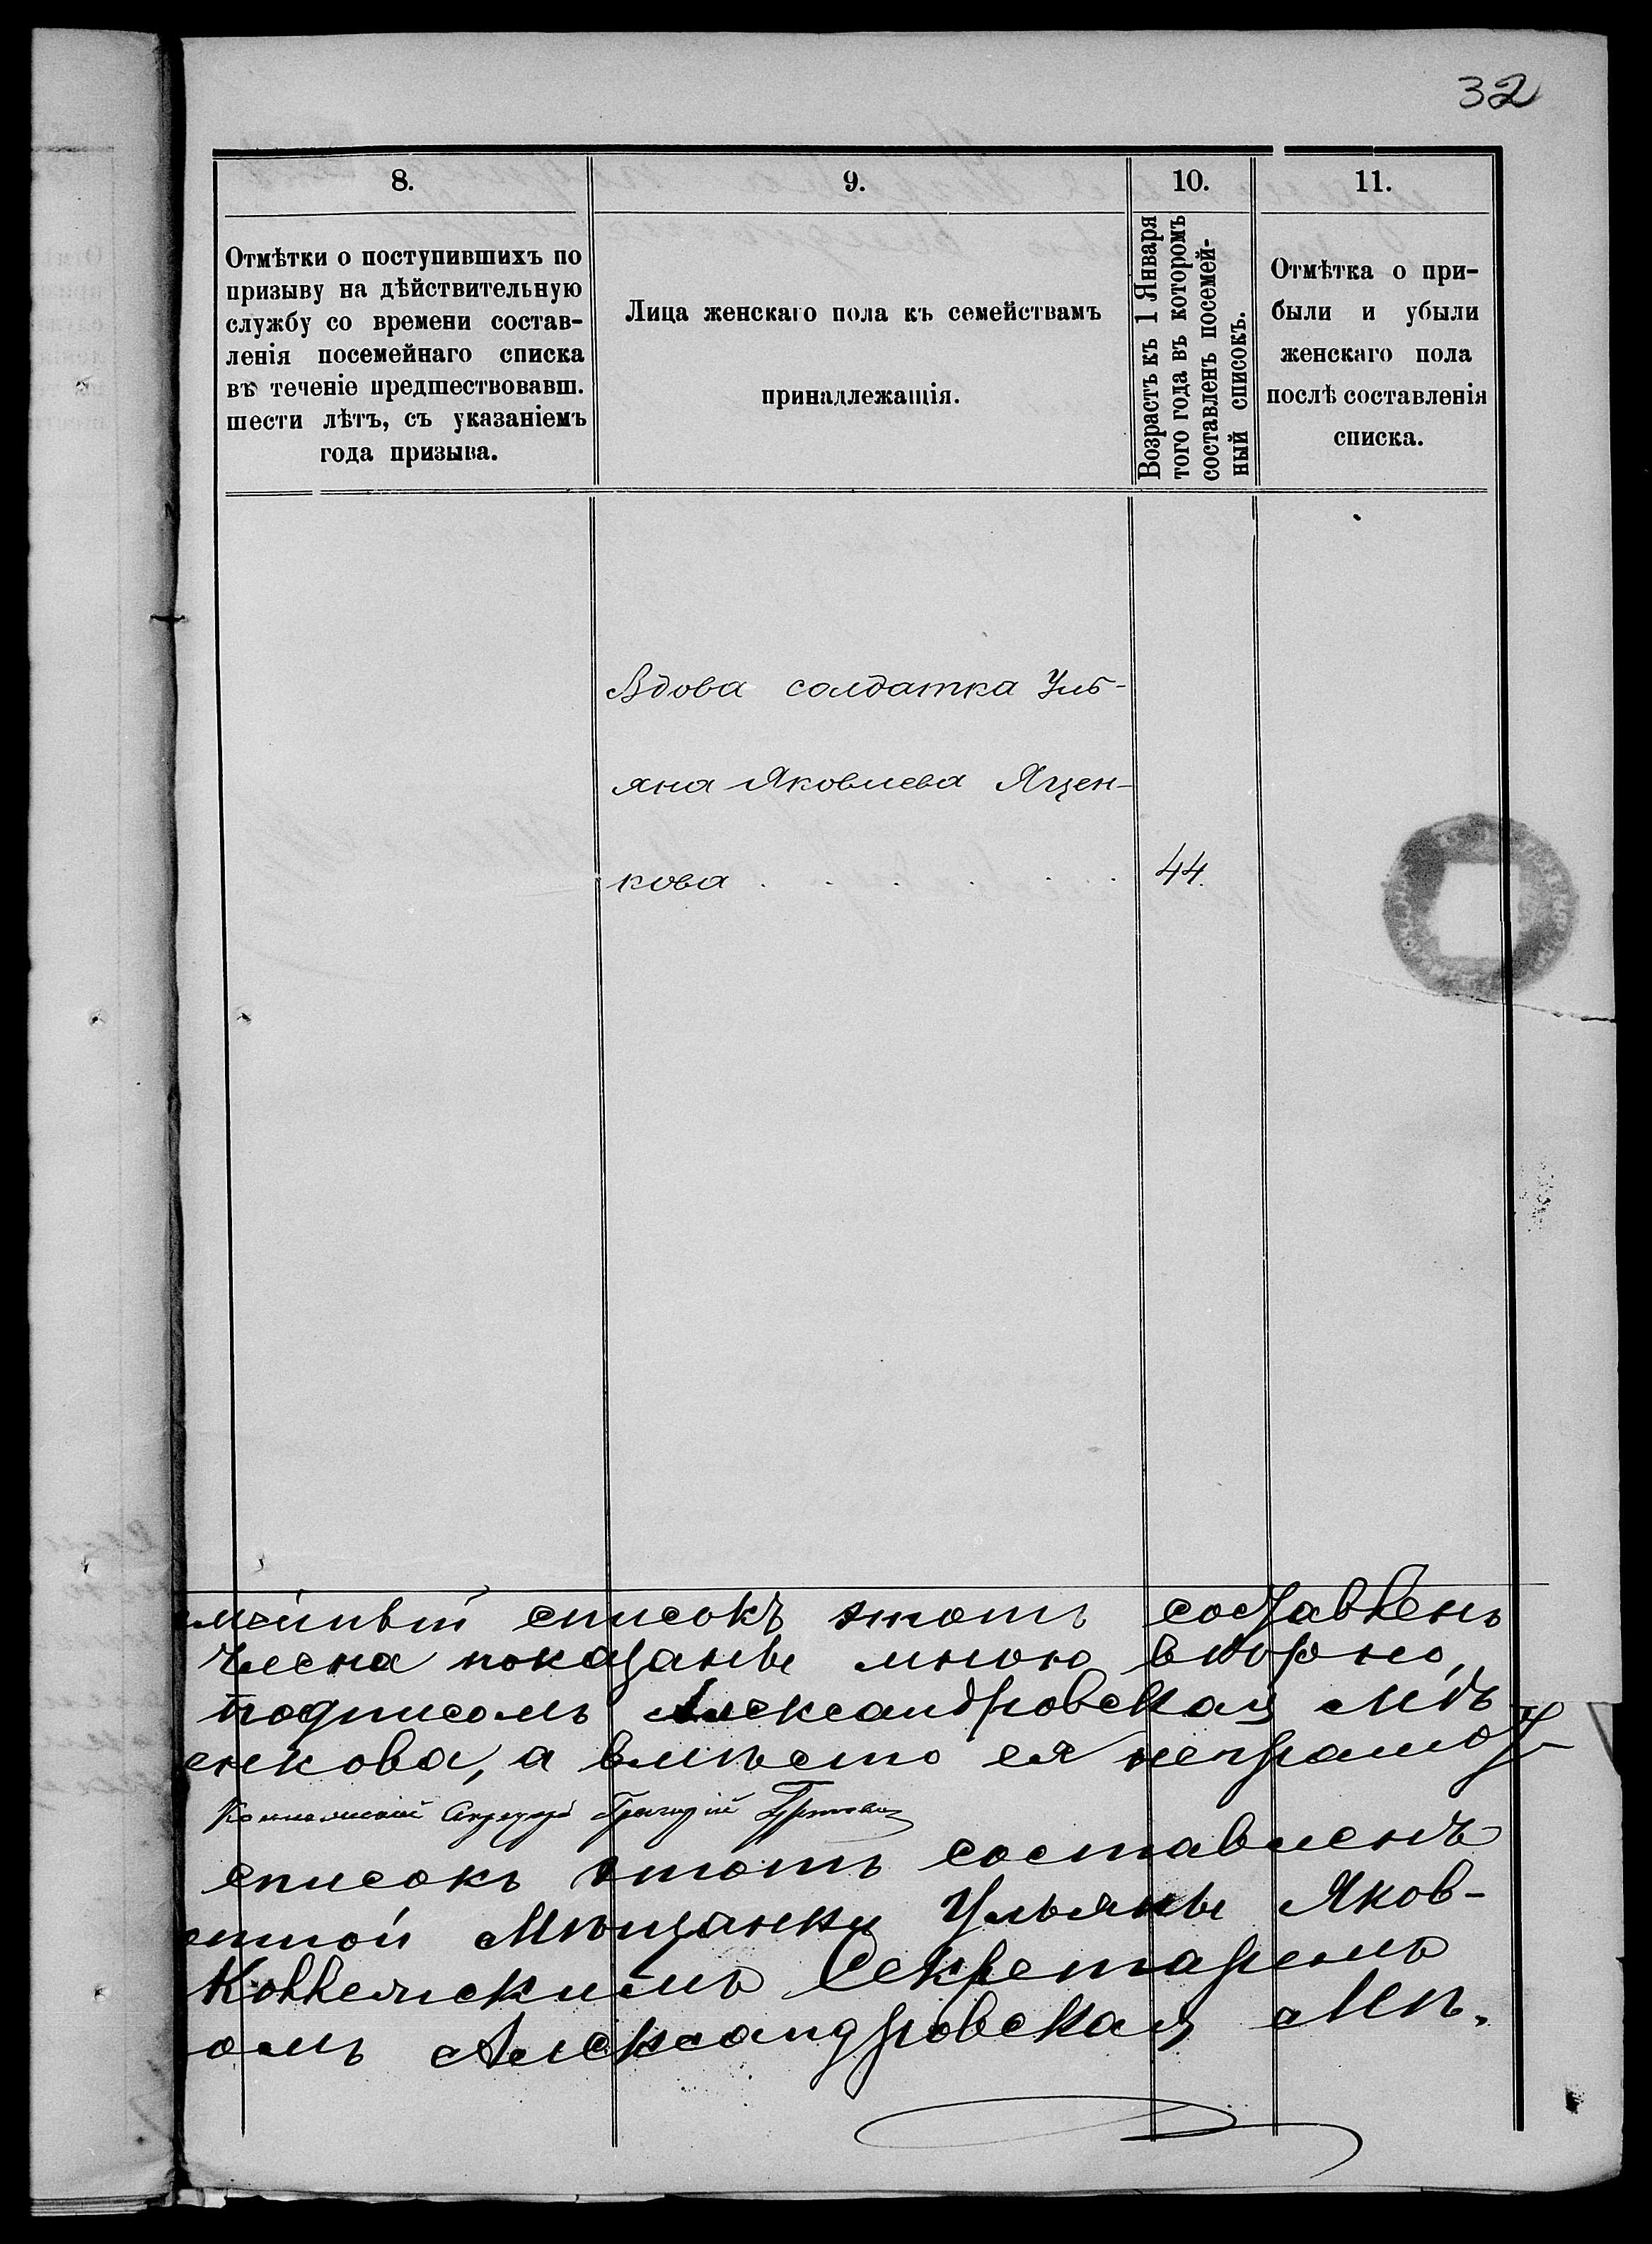 32
8.
Отмѣтки о поступившихъ по
призыву на дѣйствительную
службу со времени состав-
ленія посемейнаго списка
въ теченіе предшествовавш.
шести лѣтъ, съ указаніемъ
года призыва.
9.
Лица женскаго пола къ семействамъ
принадлежащія.
10.
Возрастъ къ 1 Января
того года въ которомъ
составленъ посемей-
ный списокъ.
11.
Отмѣтка о при-
были и убыли
женскаго пола
послѣ составленія
списка.
Вдова солдатка Уль-
яна Яковлева Яцен-
кова . . . . . 44.
списокъ этотъ составленъ
показаны мною вѣрно,
подписомъ Александровская Мѣ
енкова, а вмѣсто ея неграмот
Коллежскій Секретарь Григорій
списокъ этотъ составленъ
Мѣщанки Ульяны Яков-
Коллежскимъ Секретаремъ
омъ Александровская Мѣ.